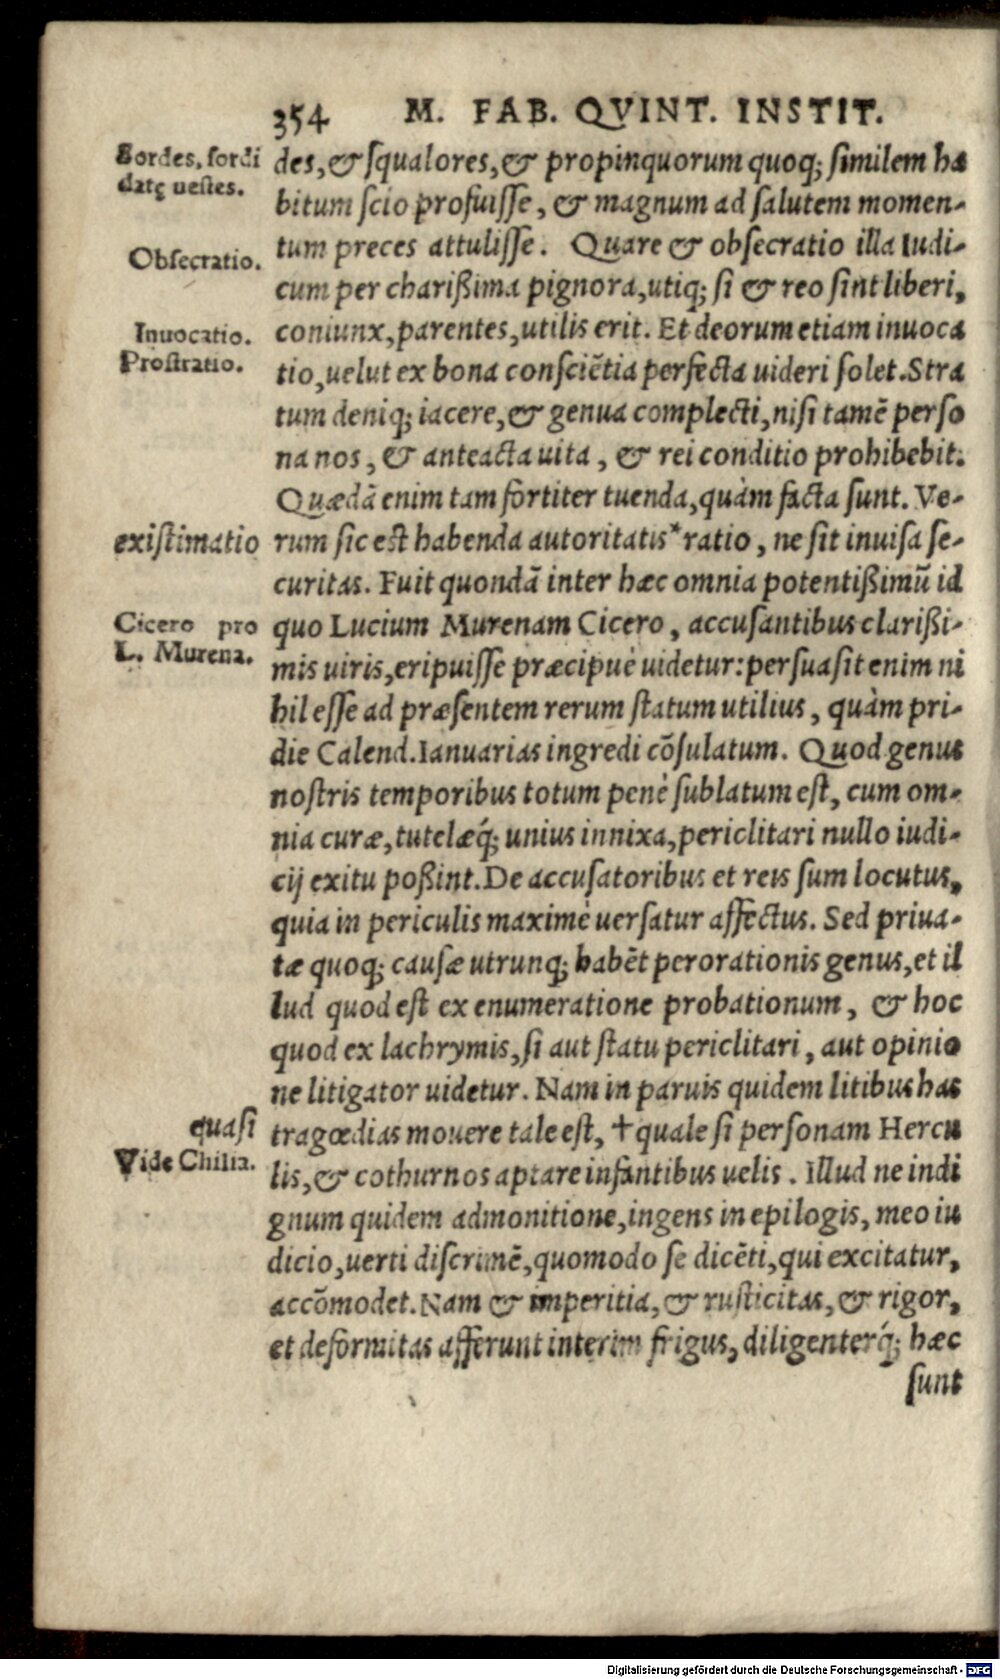 354 M. FAB. QVINT. INSTIT.
Sordes, sordi
datę uestes.
Obsecratio.
Inuocatio.
Prostratio.
existimatio
Cicero pro
L. Murena.
quasi
Vide Chilia.
des, & squalores, & propinquorum quoq; similem ha
bitum scio profuisse, & magnum ad salutem momen-
tum preces attulisse. Quare & obsecratio illa Iudi-
cum per charißima pignora, utiq; si & reo sint liberi,
coniunx, parentes, utilis erit. Et deorum etiam inuoca
tio, uelut ex bona consciẽtia perfecta uideri solet. Stra
tum deniq; iacere, & genua complecti, nisi tamẽ perso
na nos, & anteacta uita, & rei conditio prohibebit.
Quædã enim tam fortiter tuenda, quàm facta sunt. Ve-
rum sic est habenda autoritatis* ratio, ne sit inuisa se-
curitas. Fuit quondã inter hæc omnia potentißimũ id
quo Lucium Murenam Cicero, accusantibus clarißi-
mis uiris, eripuisse præcipuè uidetur: persuasit enim ni
hil esse ad præsentem rerum statum utilius, quàm pri-
die Calend. Ianuarias ingredi cõsulatum. Quod genus
nostris temporibus totum penè sublatum est, cum om-
nia curæ, tutelæq́; unius innixa, periclitari nullo iudi-
cij exitu poßint. De accusatoribus et reis sum locutus,
quia in periculis maximè uersatur affectus. Sed priua-
tæ quoq; causæ utrunq; habẽt perorationis genus, et il
lud quod est ex enumeratione probationum, & hoc
quod ex lachrymis, si aut statu periclitari, aut opinio
ne litigator uidetur. Nam in paruis quidem litibus has
tragœdias mouere tale est, †quale si personam Hercu
lis, & cothurnos aptare infantibus uelis. Illud ne indi
gnum quidem admonitione, ingens in epilogis, meo iu
dicio, uerti discrimẽ, quomodo se dicẽti, qui excitatur,
accõmodet. Nam & imperitia, & rusticitas, & rigor,
et deformitas afferunt interim frigus, diligenterq́; hæc
sunt
Digitalisierung gefördert durch die Deutsche Forschungsgemeinschaft - DFG